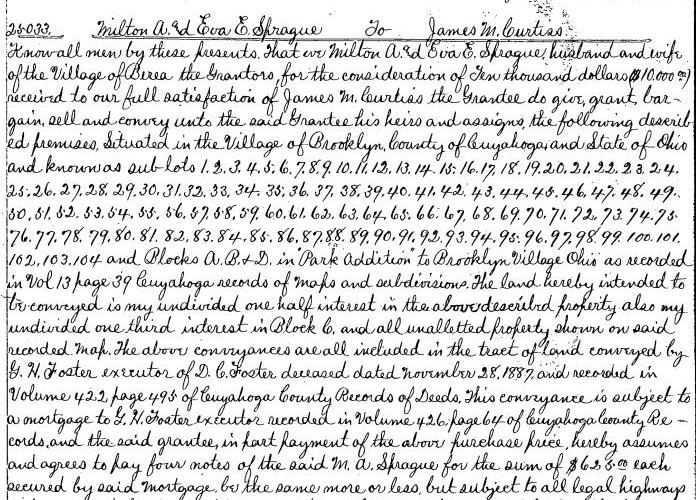 25033. Milton A. & Eva E. Sprague To James M. Curtiss.
Know all men by these presents, That we Milton A. & Eva E. Sprague, husband and wife
of the Village of Berea the Grantors, for the consideration of Ten thousand dollars ($10.000 00)
received to our full satisfaction of James M. Curtiss the Grantee do give, grant, bar-
gain, sell and convey unto the said Grantee his heirs and assigns, the following describ-
ed premises, Situated in the Village of Brooklyn, County of Cuyahoga, and State of Ohio
and known as sub-lots 1. 2. 3. 4. 5. 6. 7. 8. 9. 10. 11. 12. 13. 14. 15. 16. 17. 18. 19. 20. 21. 22. 23. 24.
25. 26. 27. 28. 29. 30. 31. 32. 33. 34. 35. 36. 37. 38. 39. 40. 41. 42. 43. 44. 45. 46. 47. 48. 49.
50. 51. 52. 53. 54. 55. 56. 57. 58. 59. 60. 61. 62. 63. 64. 65. 66. 67. 68. 69. 70. 71. 72. 73. 74. 75.
76. 77. 78. 79. 80. 81. 82. 83. 84. 85. 86. 87. 88. 89. 90. 91. 92. 93. 94. 95. 96. 97. 98. 99. 100. 101.
102, 103, 104 and Blocks A. B. & D. in "Park Addition" to Brooklyn Village Ohio as recorded
in Vol 13 page 39 Cuyahoga records of maps and subdivisions. The land hereby intended to
be conveyed is my undivided one half interest in the above described property also my
undivided one third interest in Block C, and all unallotted property shown on said
recorded Map. The above conveyances are all included in the tract of land conveyed by
G. H. Foster executor of D. C. Foster deceased dated November 28, 1887, and recorded in
Volume 422, page 495 of Cuyahoga County Records of Deeds. This conveyance is subject to
a mortgage to G. H. Foster executor recorded in Volume 426, page 64 of Cuyahoga County Re-
cords, and the said grantee, in part payment of the above purchase price, hereby assumes
and agrees to pay four notes of the said M. A. Sprague for the sum of $625.00 each
secured by said Mortgage, be the same more or less, but subject to all legal highways